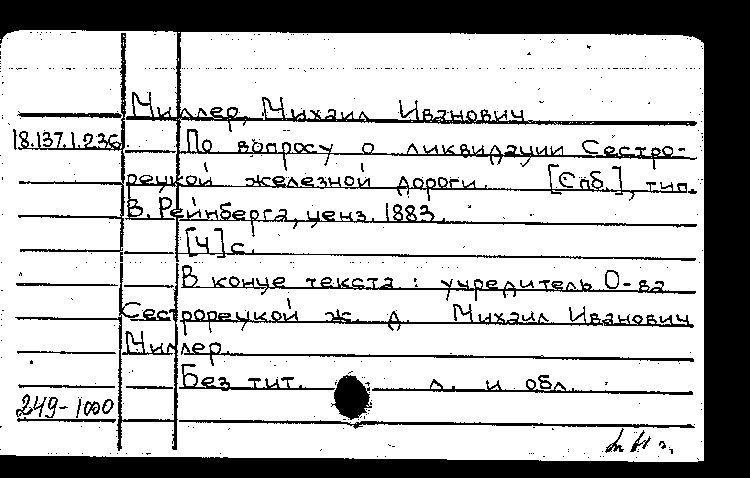 Миллер, Михаил Иванович
18.137.1.236 По вопросу о ликвидации Сестро-
рецкой железной дороги. [Спб.], тип.
В. Рейнберга, ценз. 1883.
[4] с.
В конце текста: учредитель О-ва
Сестрорецкой ж. д. Михаил Иванович
Миллер.
Без тит. л. и обл.
249-1000